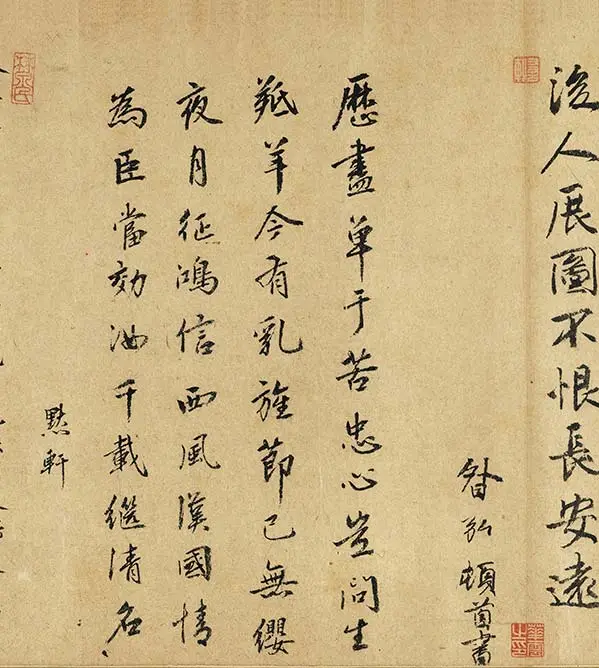 後人展圖不恨長安遠
弘頓首書
歷盡單于苦忠心豈問生
羝羊今有乳旌節已無纓
夜月征鴻信西風漢國情
為臣當効汝千載繼清名
黙軒